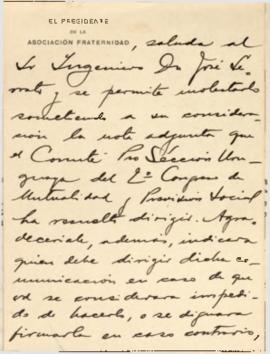 EL PRESIDENTE
DE LA
ASOCIACIÓN FRATERNIDAD
, saluda al
Sr Ingeniero Dn José Se-
rrato y se permite molestarlo
sometiendo a su considera-
ción la nota adjunta que
el Comité Pro Sección Uru-
guaya del 2º Congreso de
Mutualidad y Previsión Social
ha resuelto dirigir. Agra-
deceríale, además, indicara
quien debe dirigir dicha co-
municación en caso de que
Vd se considerara impedi-
do de hacerlo, o se dignara
firmarla en caso contrario,